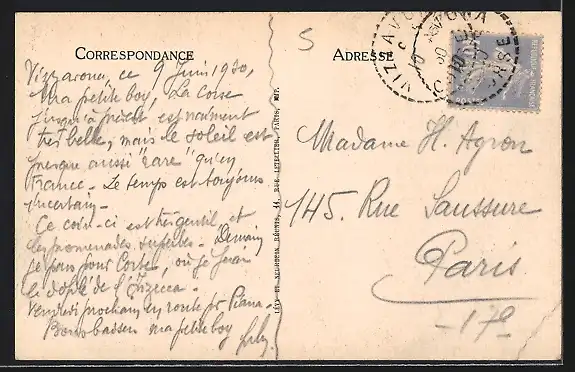 CORRESPONDANCE
Vizzavona, ce 9 Juin 1930,
Ma petite boy, La Corse
jusqu'à présent est vraiment
très belle, mais le soleil est
presque aussi "rare" qu'en
France - Le temps est toujours
incertain -
Ce coin-ci est très gentil, et
les promenades superbes - Demain
je pars pour Corte, où je ferai
Vendredi prochain, en route pr Piana -
Bons baisers ma petite boy
LÉVY ET NEURDEIN RÉUNIS, 44, RUE LETELLIER, PARIS, IMP.
ADRESSE
S
VIZZAVONA
CORSE
Madame H. Agron
145. Rue Saussure
Paris
- 17e